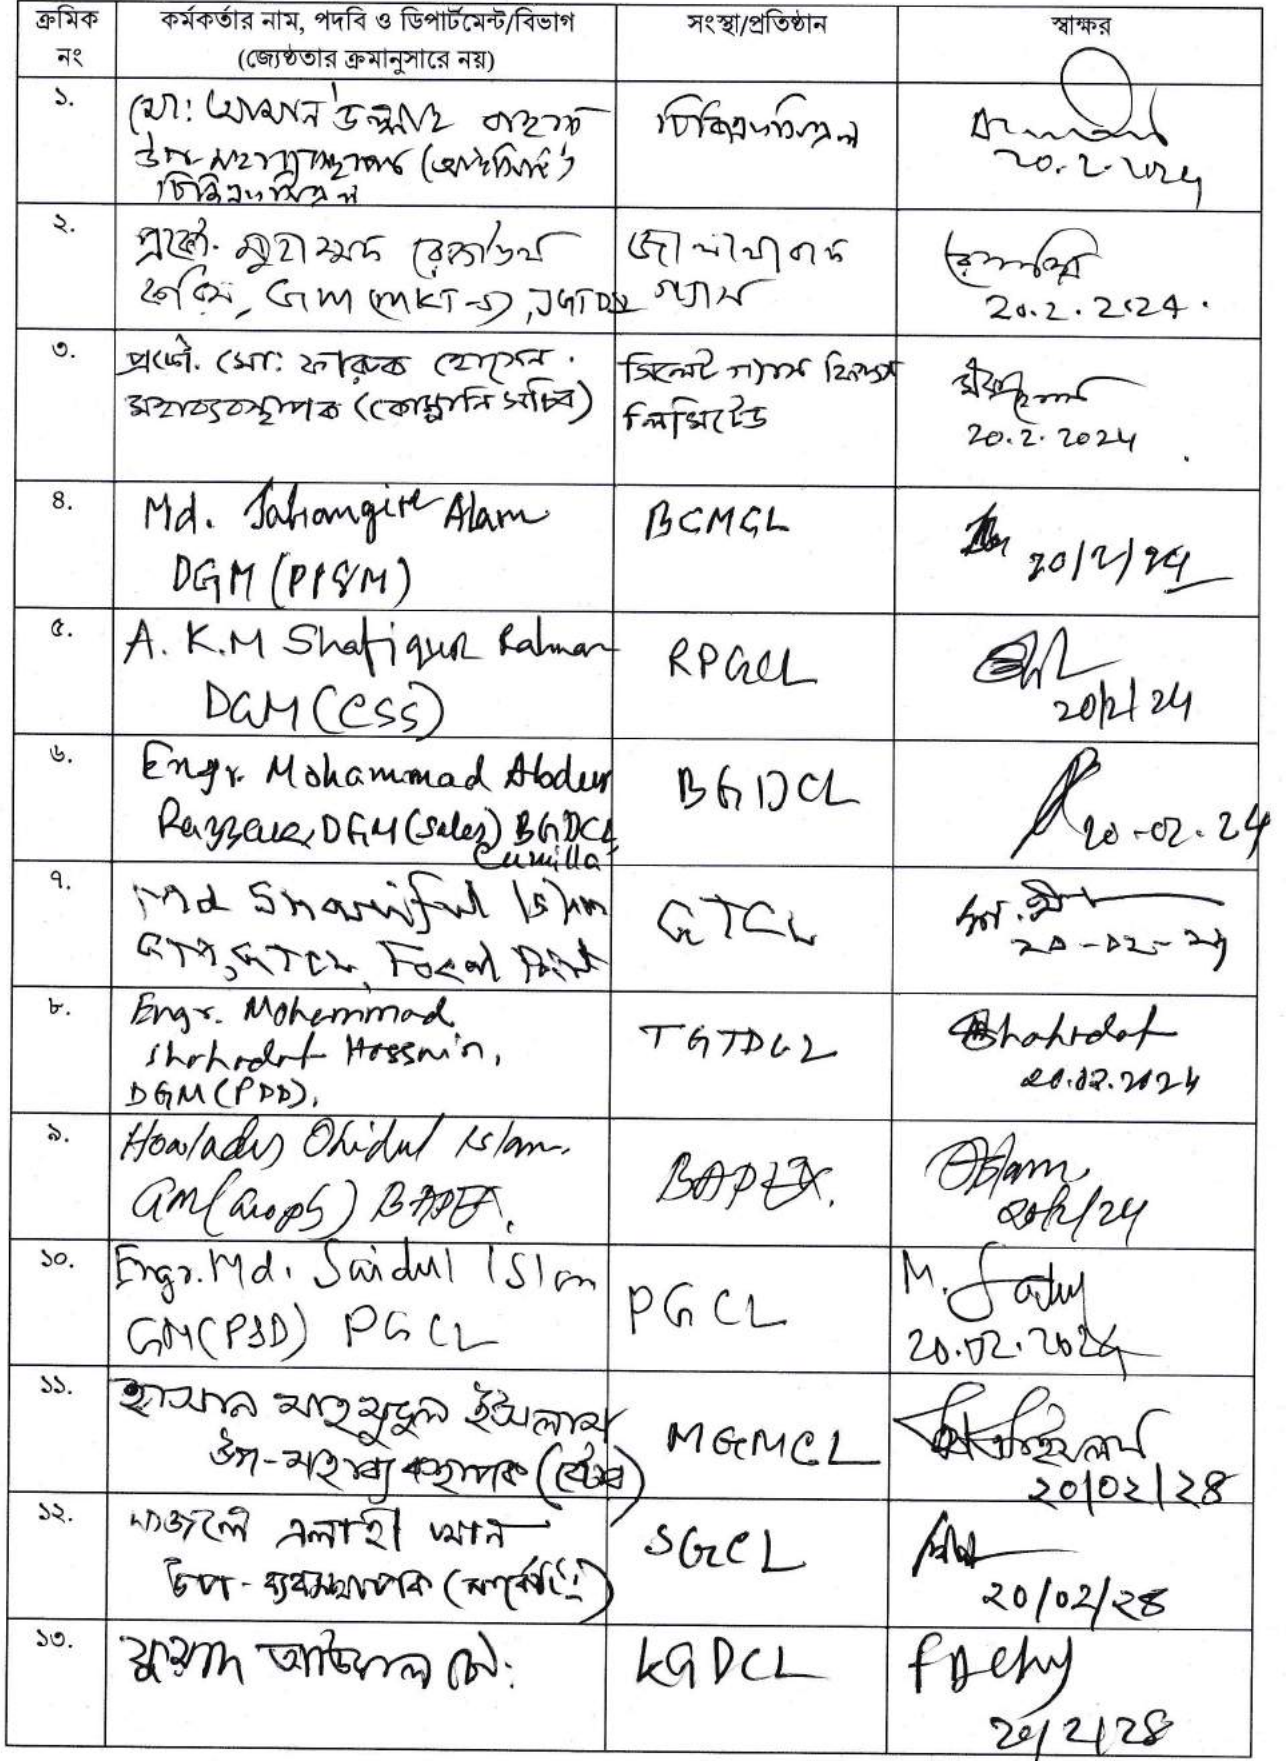 ক্রমিক নং
কর্মকর্তার নাম, পদবি ও ডিপার্টমেন্ট/বিভাগ
(জ্যেষ্ঠতার ক্রমানুসারে নয়)
সংস্থা/প্রতিষ্ঠান
স্বাক্ষর
১.
মো: আমান উল্লাহ
উপ-মহাব্যবস্থাপক (আইসিটি)
20.2.2024
২.
প্রকৌ. মুহাম্মদ রেজাউল
করিম, GM (MKT-S), JGTDSL
জালালাবাদ
গ্যাস
20.2.2024.
৩.
প্রকৌ. মো: ফারুক হোসেন.
মহাব্যবস্থাপক (কোম্পানি সচিব)
সিলেট গ্যাস ফিল্ডস
লিমিটেড
20.2.2024
৪.
Md. Jahangir Alam
DGM (PP&M)
BCMCL
20/2/24
৫.
A. K.M Shafiqur Rahman
DGM (CSS)
RPGCL
20/2/24
৬.
Engr. Mohammad Abdur
Razzaue, DGM (Sales) BGDCL,
Cumilla
BGDCL
20-02.24
৭.
Md Shariful Islam
GTCL, Focal Point
GTCL
20-02-24
৮.
Engr. Mohammad
Shahadat Hossain,
DGM (PDD),
TGTDCL
Shahadat
20.02.2024
৯.
Howlader Ohidul Islam.
GM BAPEX.
BAPEX.
Islam
20/2/24
১০.
Engr. Md. Saidul Islam
GM (P&D) PGCL
PGCL
20.02.2024
১১.
হাসান মাহমুদুল ইসলাম
উপ-মহাব্যবস্থাপক
MGMCL
২০/০২/২৪
১২.
ফজলে এলাহী খান
উপ-ব্যবস্থাপক (মার্কেটিং)
SGCL
২০/০২/২৪
১৩.
ফুয়াদ আউয়াল চৌ:
KGDCL
২০/২/২৪